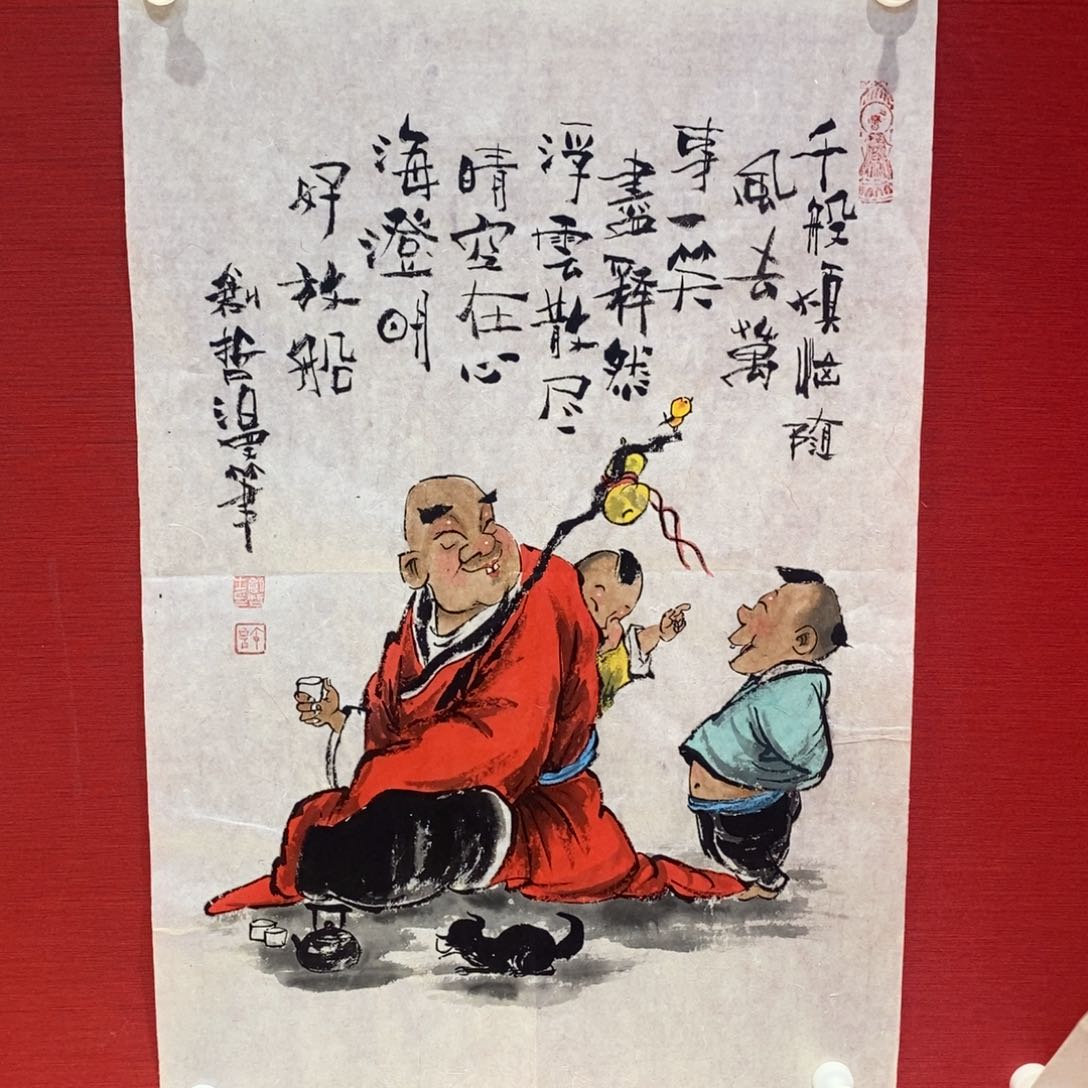 千般烦恼随
風去萬
事一笑
盡釋然
浮雲散尽
晴空在心
海澄明
好放船
哲泊墨筆